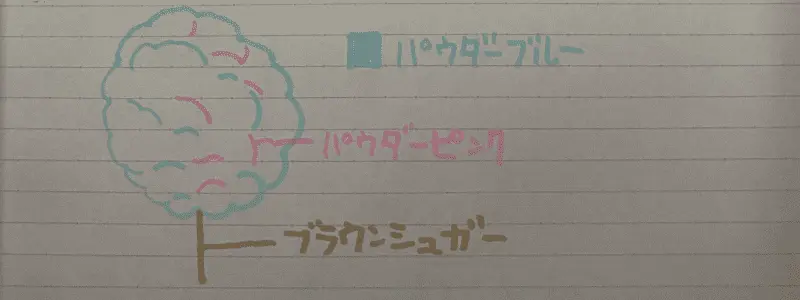 パウダーブルー
パウダーピンク
ブラウンシュガー